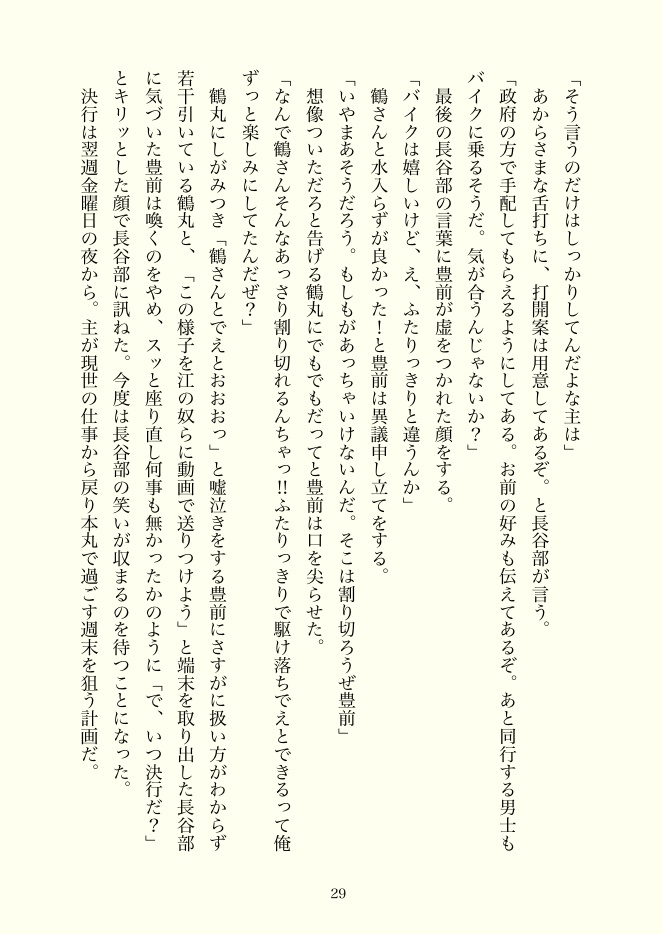 「そう言うのだけはしっかりしてんだよな主は」
　あからさまな舌打ちに、打開案は用意してあるぞ。と長谷部が言う。
「政府の方で手配してもらえるようにしてある。お前の好みも伝えてあるぞ。あと同行する男士も
バイクに乗るそうだ。気が合うんじゃないか？」
　最後の長谷部の言葉に豊前が虚をつかれた顔をする。
「バイクは嬉しいけど、え、ふたりっきりと違うんか」
　鶴さんと水入らずが良かった！と豊前は異議申し立てをする。
「いやまあそうだろう。もしもがあっちゃいけないんだ。そこは割り切ろうぜ豊前」
　想像ついただろと告げる鶴丸にでもでもだってと豊前は口を尖らせた。
「なんで鶴さんそんなあっさり割り切れるんちゃっ!!ふたりっきりで駆け落ちでえとできるって俺
ずっと楽しみにしてたんだぜ？」
　鶴丸にしがみつき「鶴さんとでえとおおおっ」と嘘泣きをする豊前にさすがに扱い方がわからず
若干引いている鶴丸と、「この様子を江の奴らに動画で送りつけよう」と端末を取り出した長谷部
に気づいた豊前は喚くのをやめ、スッと座り直し何事も無かったかのように「で、いつ決行だ？」
とキリッとした顔で長谷部に訊ねた。今度は長谷部の笑いが収まるのを待つことになった。
　決行は翌週金曜日の夜から。主が現世の仕事から戻り本丸で過ごす週末を狙う計画だ。
29